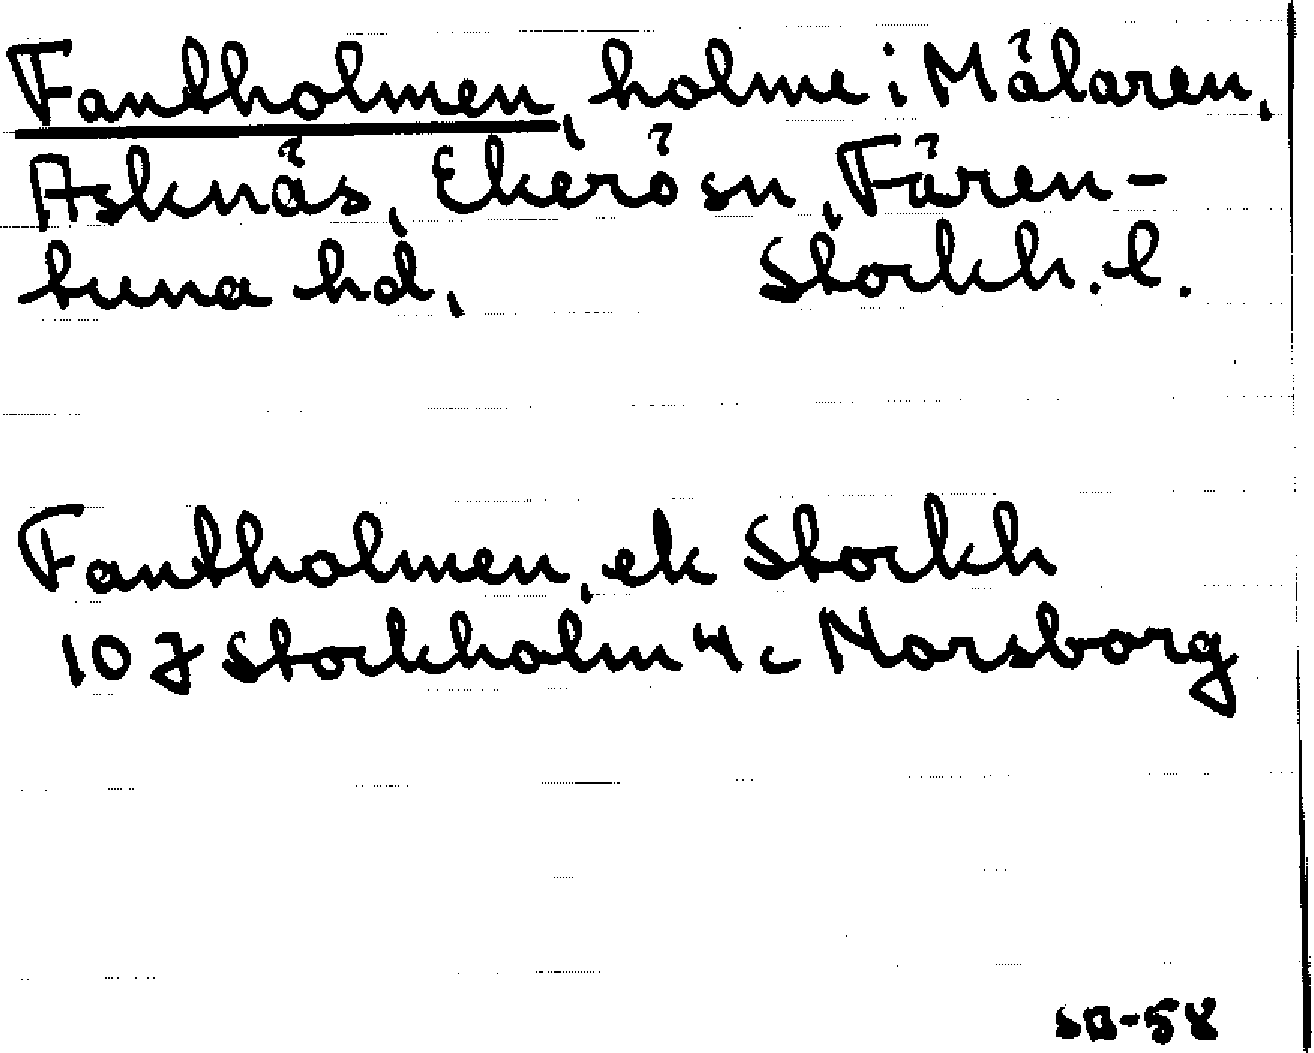 Fantholmen, holme i Mälaren,
Asknäs, Ekerö sn, Fären-
tuna hd, Stockh. l.
Fantholmen, ek Stockh
10 J Stockholm 4 c Norsborg
SB-58